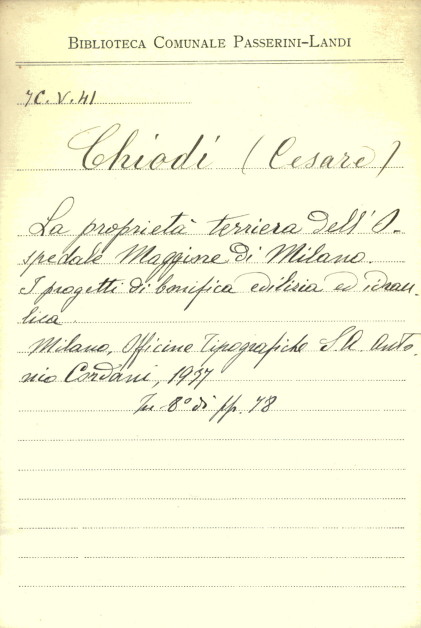 BIBLIOTECA COMUNALE PASSERINI-LANDI
7C.V.41
Chiodi (Cesare)
La proprietà terriera dell'O-
spedale Maggiore di Milano.
I progetti di bonifica edilizia ed idrau-
lica
Milano, Officine Tipografiche S.A. Anto-
nio Cordani, 1937
In 8° di pp. 78